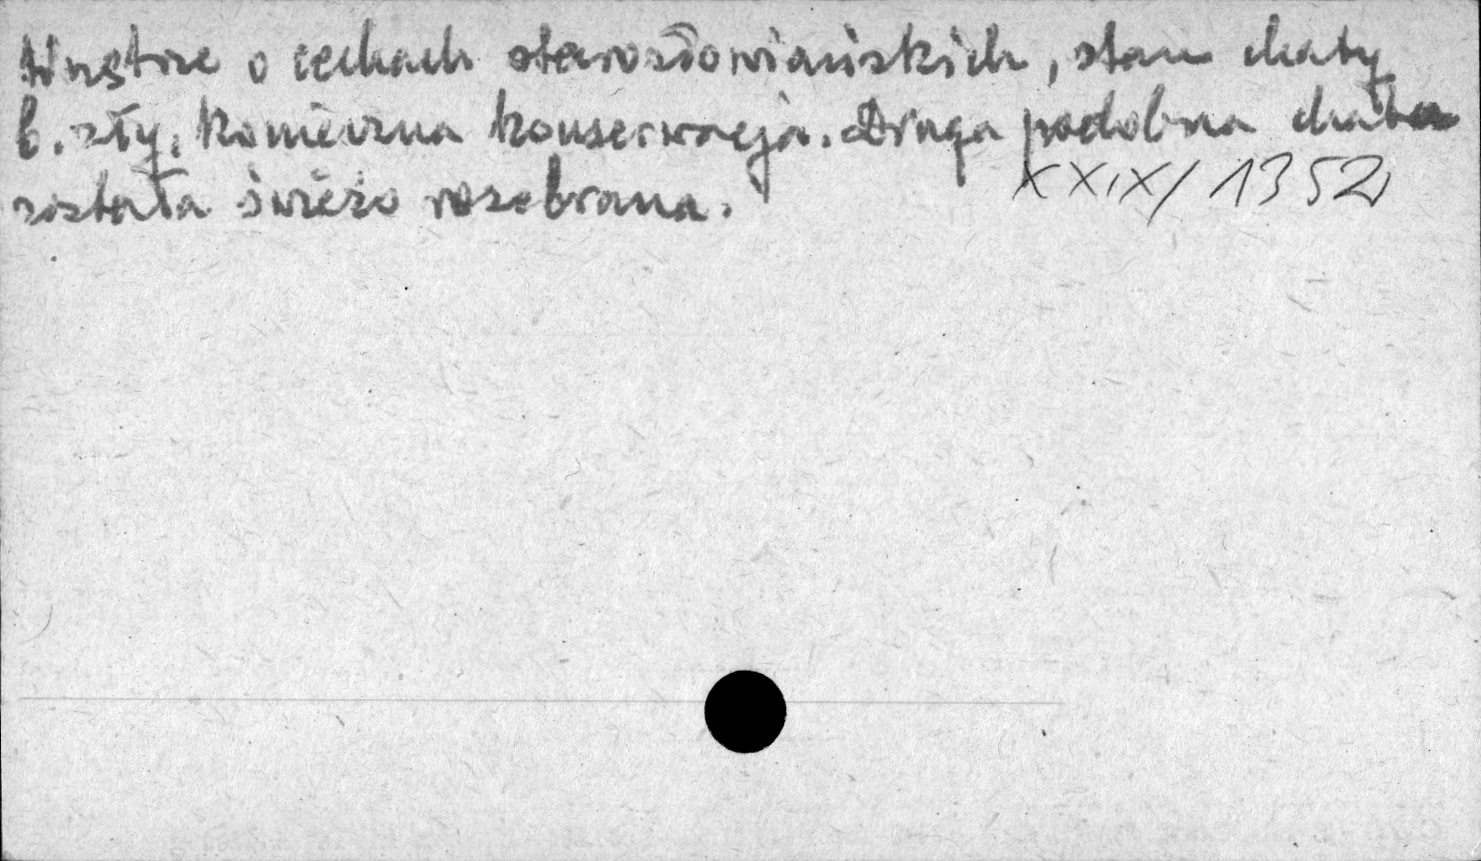 Wnętrze o cechach starosłowiańskich, stan chaty
b. zły, konieczna konserwacja. Druga podobna chata
została świeżo rozebrana.
XXIX/1352